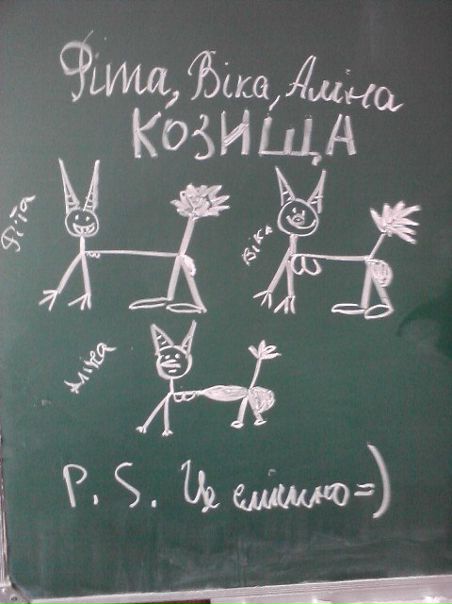 Ріта, Віка, Аміна
КОЗИЩА
Ріта
Віка
Аліна
P. S. Це смішно =)